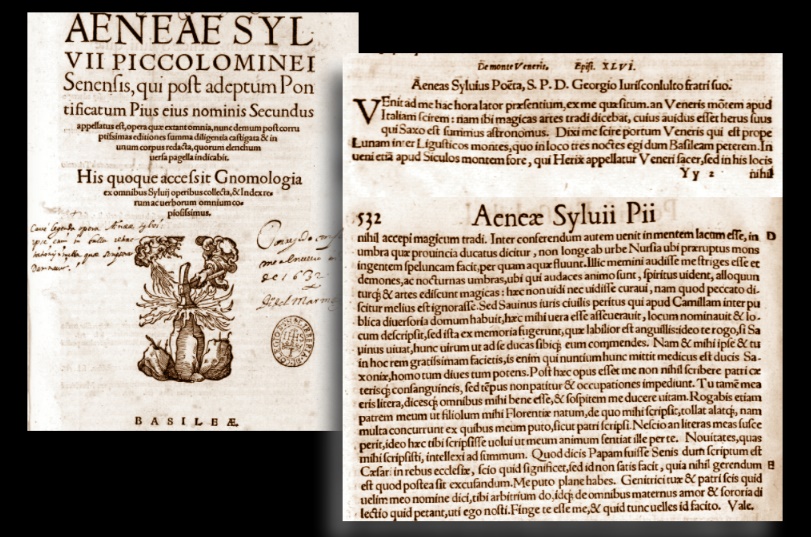 AENEAE SYL
VII PICCOLOMINEI
Senensis, qui post adeptum Pon
tificatum Pius eius nominis Secundus
appellatus est, opera quæ extant omnia, nunc demum post corru
ptissimas editiones summa diligentia castigata & in
unum corpus redacta, quorum elenchum
uersa pagella indicabit.
His quoque accessit Gnomologia
ex omnibus Syluij operibus collecta, & Index re-
rum ac uerborum omnium co-
piosissimus.
de 1632
BASILEÆ.
De monte Veneris. Epist. XLVI.
Aeneas Syluius Poëta, S. P. D. Georgio Iurisconsulto fratri suo.
VEnit ad me hac hora lator præsentium, ex me quæsitum. an Veneris mõtem apud
Italiam scirem: nam ibi magicas artes tradi dicebat, cuius auidus esset herus suus
qui Saxo est summus astronomus. Dixi me scire portum Veneris qui est prope
Lunam inter Ligusticos montes, quo in loco tres noctes egi dum Basileam peterem. In
ueni etiã apud Siculos montem fore, qui Herix appellatur Veneri sacer, sed in his locis
Yy 2 nihil
532 Aeneæ Syluii Pii
nihil accepi magicum tradi. Inter conserendum autem uenit in mentem lacum esse, in D
umbra quæ prouincia ducatus dicitur, non longe ab urbe Nursia ubi præruptus mons
ingentem speluncam facit, per quam aquæ fluunt. Illic memini audisse me striges esse et
demones, ac nocturnas umbras, ubi qui audaces animo sunt, spiritus uident, alloquun
turq; & artes ediscunt magicas: hæc non uidi nec uidisse curaui, nam quod peccato di-
scitur melius est ignorasse. Sed Sauinus iuris ciuilis peritus qui apud Camillam inter pu
blica diuersoria domum habuit, hæc mihi uera esse asseuerauit, locum nominauit & lo-
cum descripsit, sed ista ex memoria fugerunt, quæ labilior est anguillis: ideo te rogo, si Sa
uinus uiuat, hunc uirum ut ad se ducas sibiq; eum commendes. Nam & mihi ipsi & tu
in hoc rem gratissimam facietis, is enim qui nuntium hunc mittit medicus est ducis Sa-
xoniæ, homo tum diues tum potens. Post hæc opus esset me non nihil scribere patri cæ
terisq; consanguineis, sed tẽpus non patitur & occupationes impediunt. Tu tamẽ mea
eris litera, dicesq; omnibus mihi bene esse, & sospitem me ducere uitam. Rogabis etiam
patrem meum ut filiolum mihi Florentiæ natum, de quo mihi scripsit, tollat alatq;, nam
multa concurrunt ex quibus meum puto, sicut patri scripsi. Nescio an literas meas susce
perit, ideo hæc tibi scripsisse uolui ut meum animum sentiat ille per te. Nouitates, quas
mihi scripsisti, intellexi ad summum. Quod dicis Papam fuisse Senis dum scriptum est
Cæsar: in rebus ecclesiæ, scio quid significet, sed id non satis facit, quia nihil gerendum E
est quod postea sit excusandum. Me puto plane habes. Genitrici tuæ & patri scis quid
uelim meo nomine dici, tibi arbitrium do, idq; de omnibus maternus amor & sororia di
lectio quid petant, uti ego nosti. Finge te esse me, & quid tunc uelles id facito. Vale.